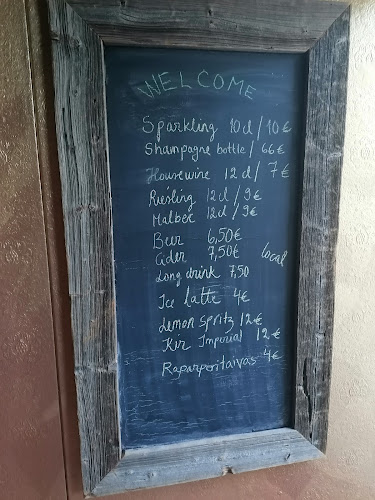 WELCOME
Sparkling 10cl / 10€
Shampagne bottle / 66€
Housewine 12cl / 7€
Riesling 12cl / 9€
Malbec 12cl / 9€
Beer 6,50€
Cider 7,50€ local
Long drink 7,50
Ice latte 4€
Lemon spritz 12€
Kir Imperial 12€
Raparperitaivas 4€